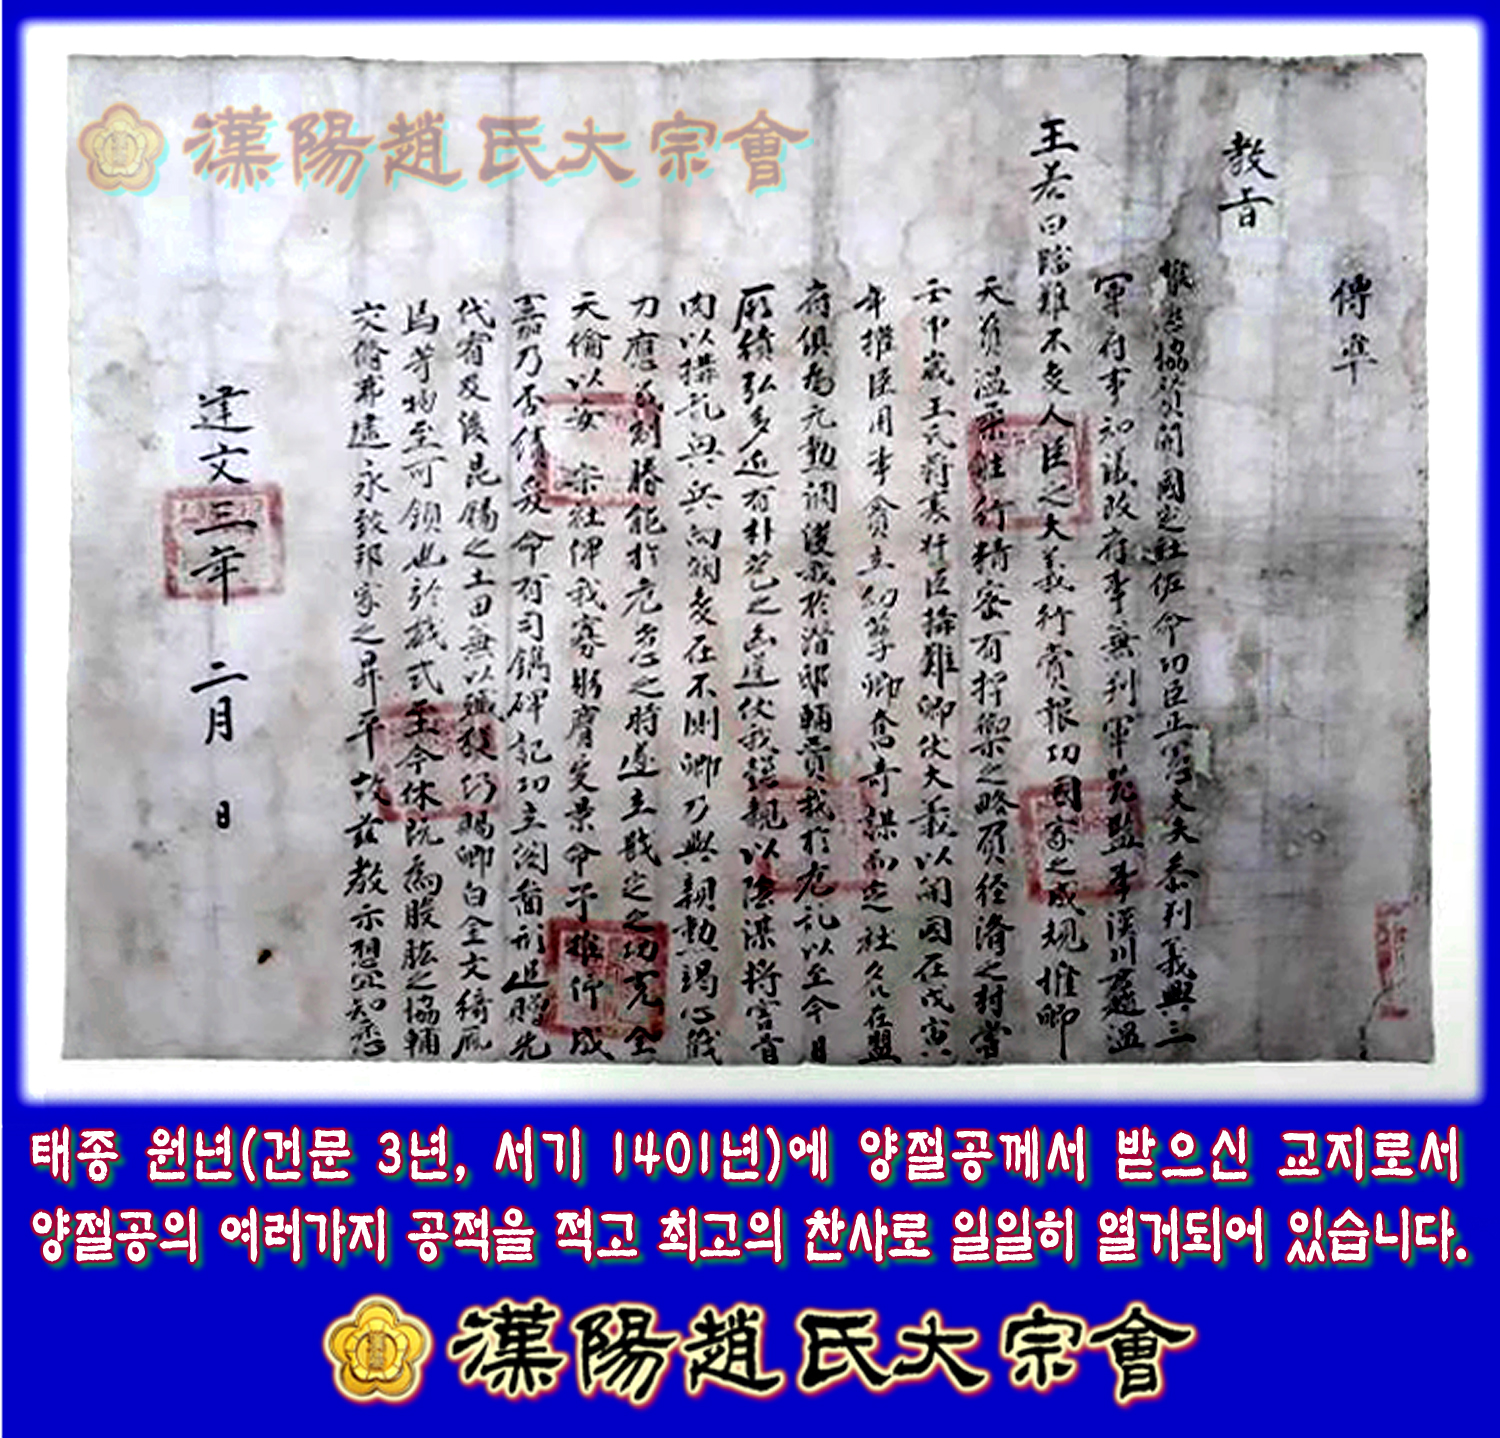 漢陽趙氏大宗會
傳準
教旨
推忠協贊開國定社佐命功臣正憲大夫參判義興三
軍府事知議政府事兼判軍器監事漢川君趙溫
王若曰臨難不变人臣之大義行賞報功國家之成規惟卿
天資溫柔性行精密有捍禦之略負經濟之材當
壬申歲王氏將衰奸臣搆難卿仗大義以開國在戊寅
年權臣用事貪立幼孽卿奮奇謀而定社名在盟
府俱為元勳調護我於潛邸輔賛我於危乱以至今日
厥績弘多近有朴苞之凶逆伏我懿親以陰謀將害骨
肉以搆乱興兵向闕变在不測卿乃與親勲竭心戮
力應義制勝能於危急之時遂立戡定之功克全
天倫以安宗社俾我寡躬膺受景命予惟仰成
嘉乃丕績爰命有司鐫碑記功立閣圖形追贈先
代宥及後昆錫之土田無以臧獲仍賜卿白金文綺廐
馬等物至可領也於戲式至今休旣為股肱之協輔
交修弗逮永致邦家之昇平故茲教示想宜知悉
建文三年 二月 日
태종 원년(건문 3년, 서기 1401년)에 양절공께서 받으신 교지로서
양절공의 여러가지 공적을 적고 최고의 찬사로 일일히 열거되어 있습니다.
漢陽趙氏大宗會